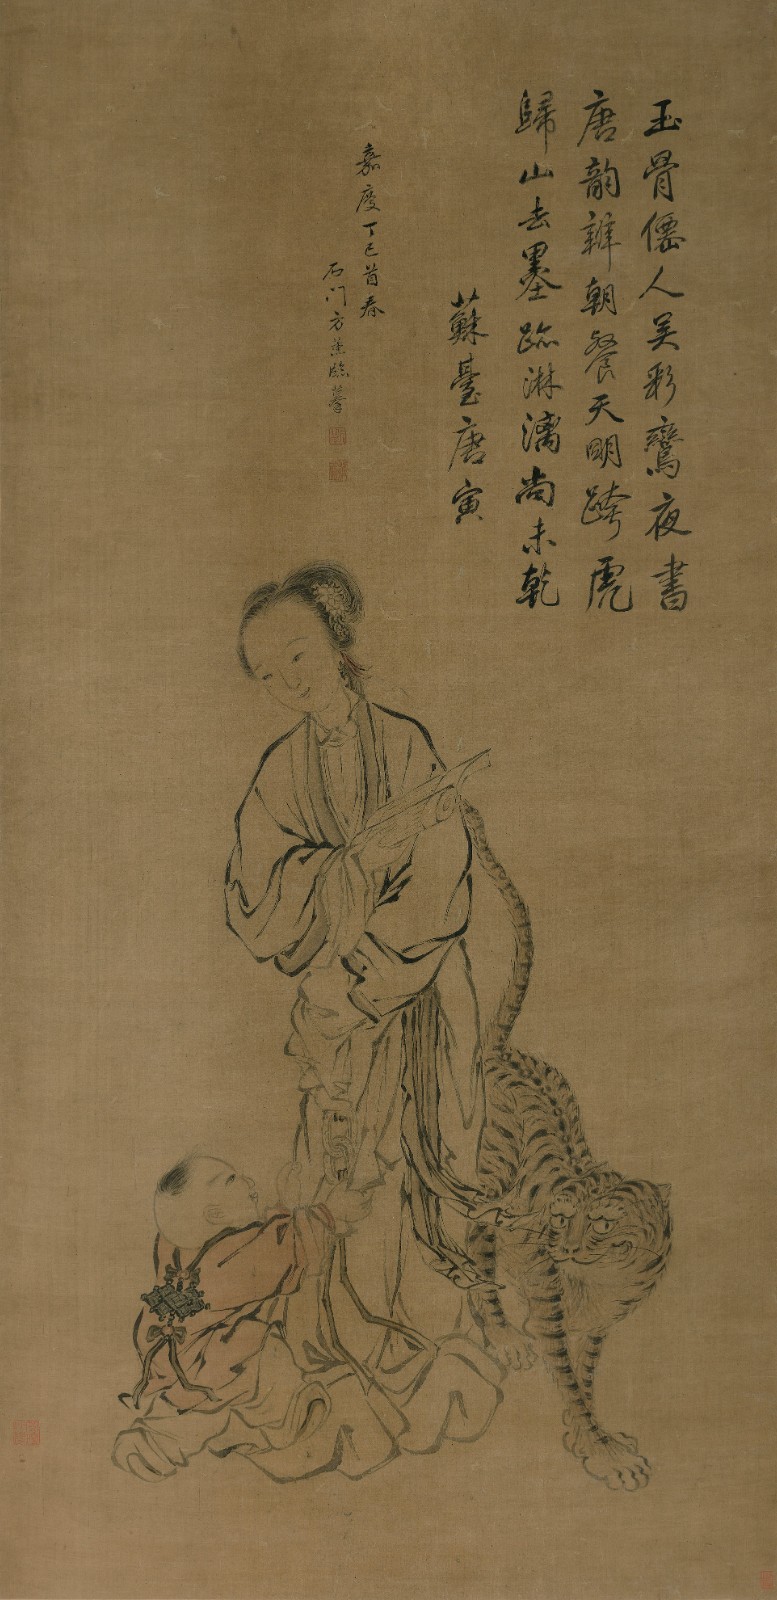 玉骨僊人吴彩鸞夜書
唐韵辦朝餐天明跨虎
歸山去墨跡淋漓尚未乾
蘇臺唐寅
嘉慶丁巳首春
石門方薰臨摹